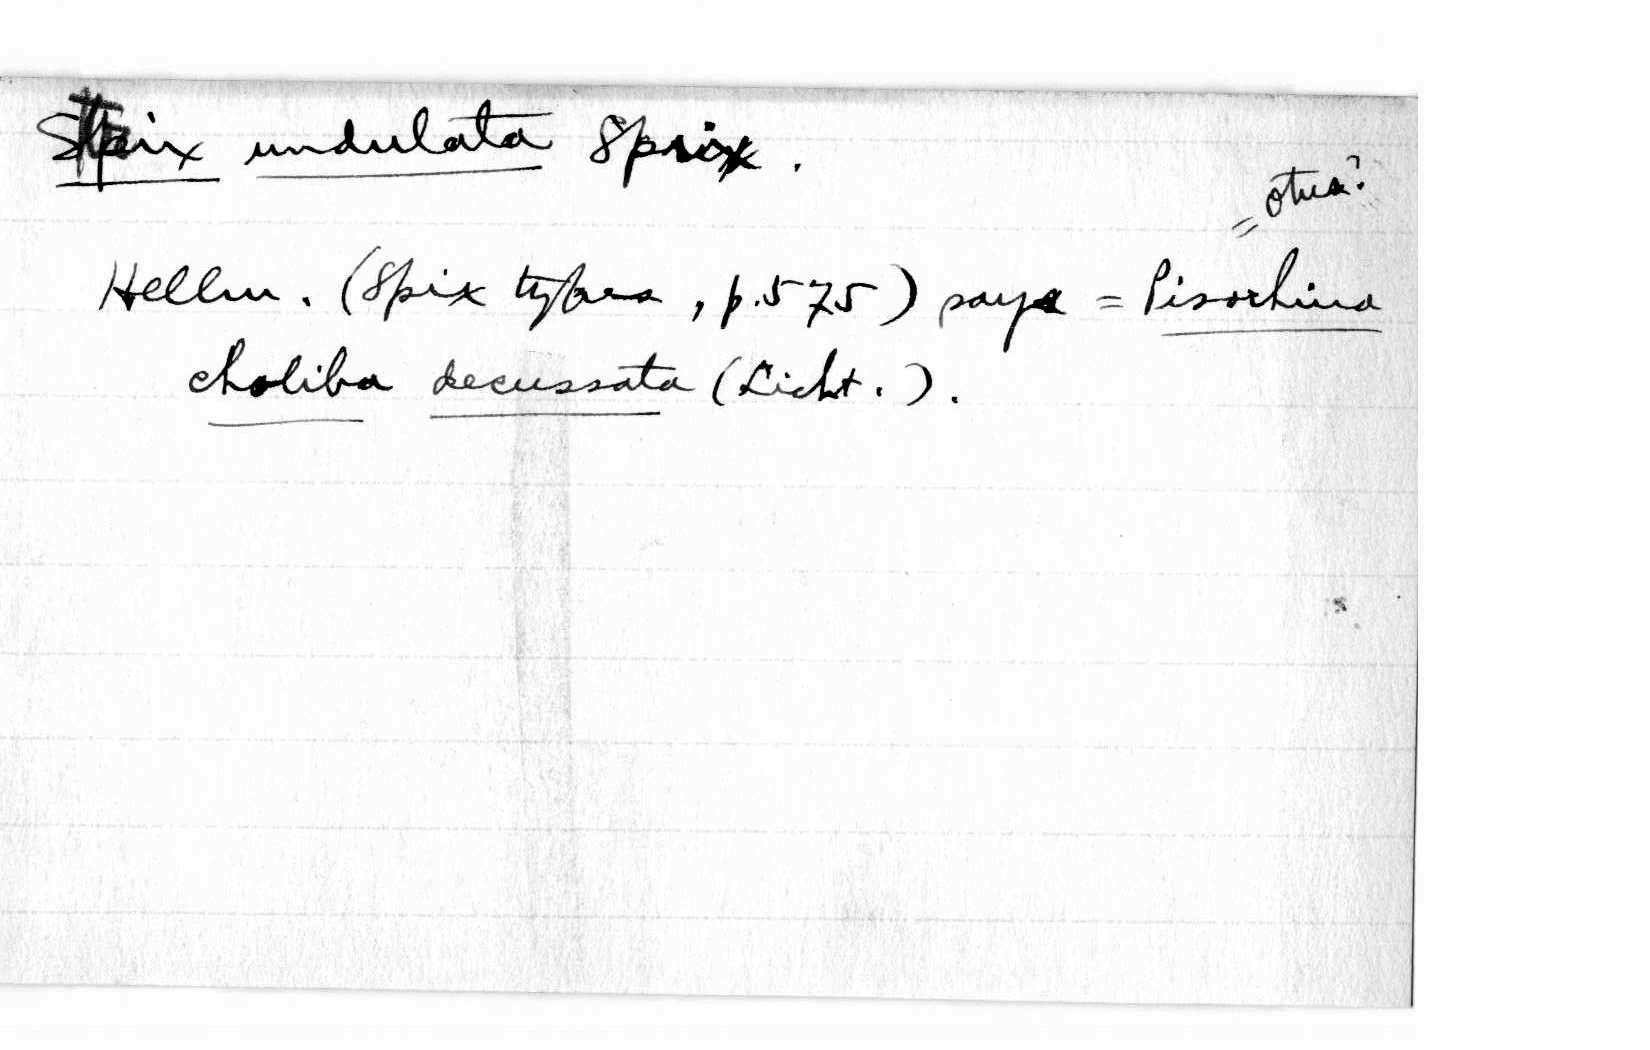 Strix undulata Spix.
= Otus?
Hellm. (Spix types, p.575) says = Pisorhina
choliba decussata (Licht.).